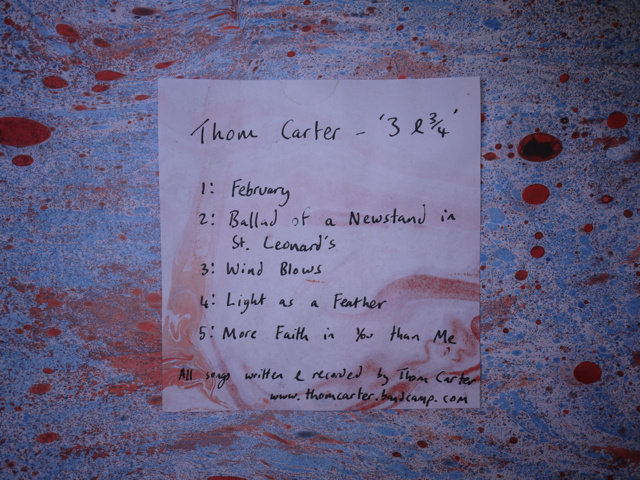 Thom Carter - '3 & ¾'
1: February
2: Ballad of a Newstand in
St. Leonard's
3: Wind Blows
4: Light as a Feather
5: More Faith in You than Me
All songs written & recorded by Thom Carter
www.thomcarter.bandcamp.com